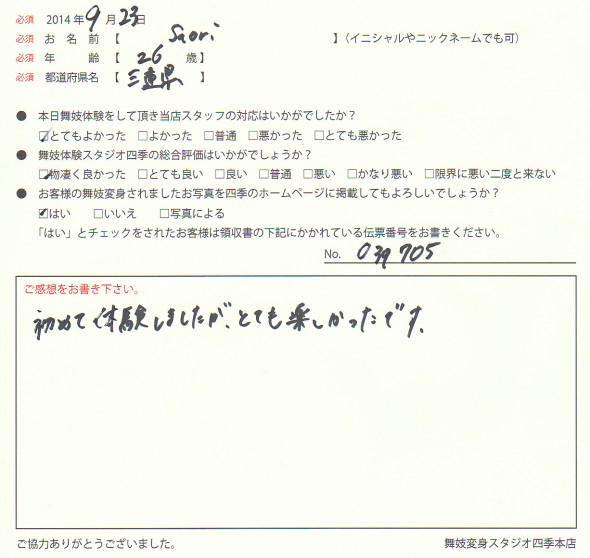 必須 2014年 9月 23日
必須 お名前【 Saori 】(イニシャルやニックネームでも可)
必須 年齢【 26 歳】
必須 都道府県名【 三重県 】
● 本日舞妓体験をして頂き当店スタッフの対応はいかがでしたか?
☑とてもよかった □よかった □普通 □悪かった □とても悪かった
● 舞妓体験スタジオ四季の総合評価はいかがでしょうか?
☑物凄く良かった □とても良い □良い □普通 □悪い □かなり悪い □限界に悪い二度と来ない
● お客様の舞妓変身されましたお写真を四季のホームページに掲載してもよろしいでしょうか?
☑はい □いいえ □写真による
「はい」とチェックをされたお客様は領収書の下記にかかれている伝票番号をお書きください。
No. 039705
ご感想をお書き下さい。
初めて体験しましたが、とても楽しかったです。
ご協力ありがとうございました。 舞妓変身スタジオ四季本店